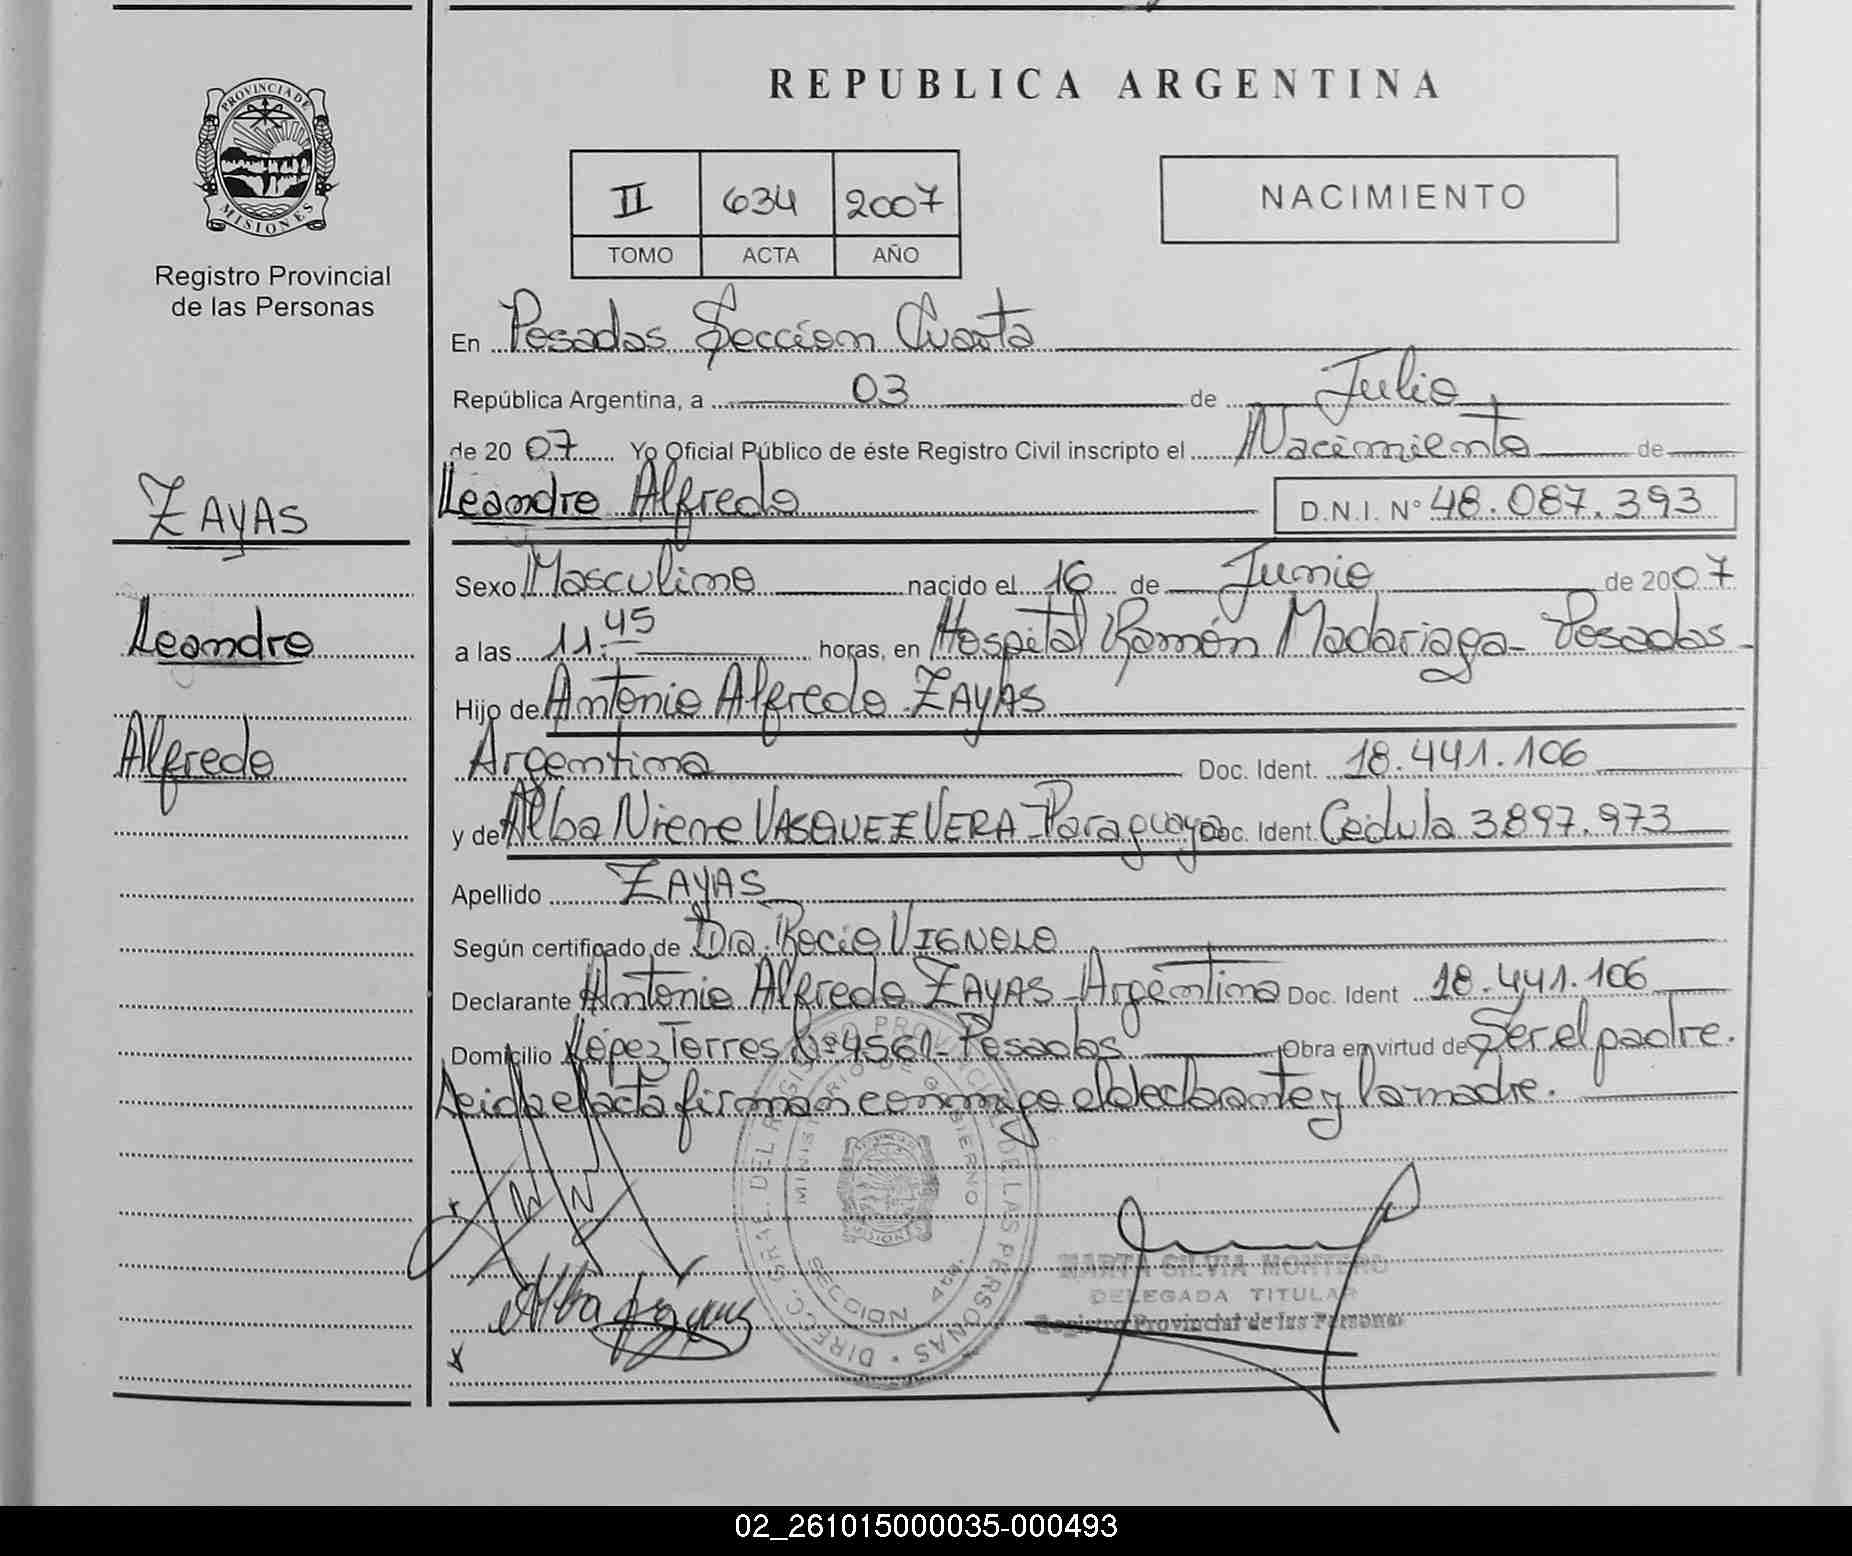 REPUBLICA ARGENTINA
PROVINCIA DE
MISIONES
Registro Provincial
de las Personas
II 634 2007
TOMO ACTA AÑO
NACIMIENTO
En Posadas Sección Cuarta
República Argentina, a 03 de Julio
de 2007 Yo Oficial Público de éste Registro Civil inscripto el Nacimiento de
ZAYAS
Leandro Alfredo D.N.I. N° 48.087.393
Sexo Masculino nacido el 16 de Junio de 2007
Leandro
a las 11:45 horas, en Hospital Ramón Madariaga - Posadas -
Hijo de Antonio Alfredo ZAYAS
Alfredo
Argentina Doc. Ident. 18.441.106
y de Alba Nirene VASQUEZ VERA - Paraguaya Doc. Ident. Cédula 3897.973
Apellido ZAYAS
Según certificado de Dra. Rocio VIGNOLO
Declarante Antonio Alfredo ZAYAS - Argentina Doc. Ident 18.441.106
Domicilio López Torres Nº 4560 - Posadas Obra en virtud de Ser el padre.
Leida el acta firman conmigo el declarante y la madre.
DIRECC. GRAL. DEL REGISTRO PROVINCIAL DE LAS PERSONAS
MINISTERIO DE GOBIERNO
MISIONES
SECCION 4ta.
Alba
MARTA SILVIA MONTERO
DELEGADA TITULAR
Registro Provincial de las Personas
02_261015000035-000493